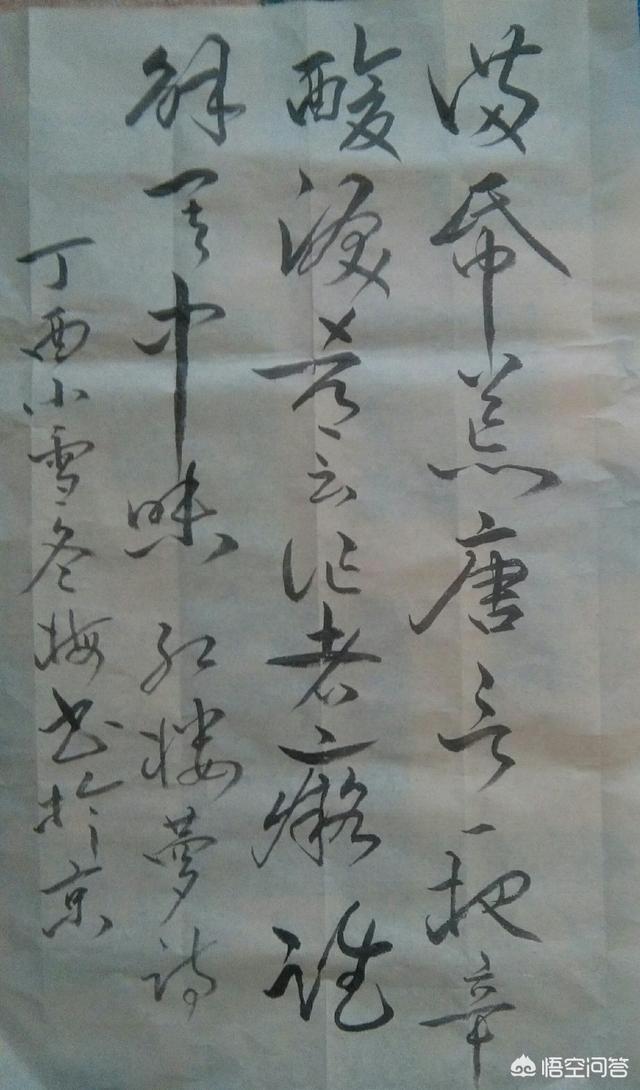 满帋荒唐言一把辛
酸淚都云作者癡谁
解其中味 红楼夢诗
丁酉小雪冬梅书於京
悟空问答